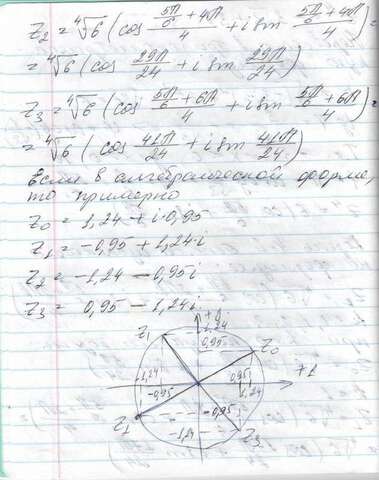 Z₂ = ⁴√6 (cos (5π/6 + 4π)/4 + i sin (5π/6 + 4π)/4) =
= ⁴√6 (cos 29π/24 + i sin 29π/24)
Z₃ = ⁴√6 (cos (5π/6 + 6π)/4 + i sin (5π/6 + 6π)/4) =
= ⁴√6 (cos 41π/24 + i sin 41π/24)
Если в алгебраической форме,
то примерно
Z₀ = 1,24 + i·0,95
Z₁ = -0,95 + 1,24·i
Z₂ = -1,24 - 0,95i
Z₃ = 0,95 - 1,24i
Z₁
1,24
0,95
Z₀
-1,24
-0,95
0,95
1,24
Z₁
-0,95
-1,24
Z₃